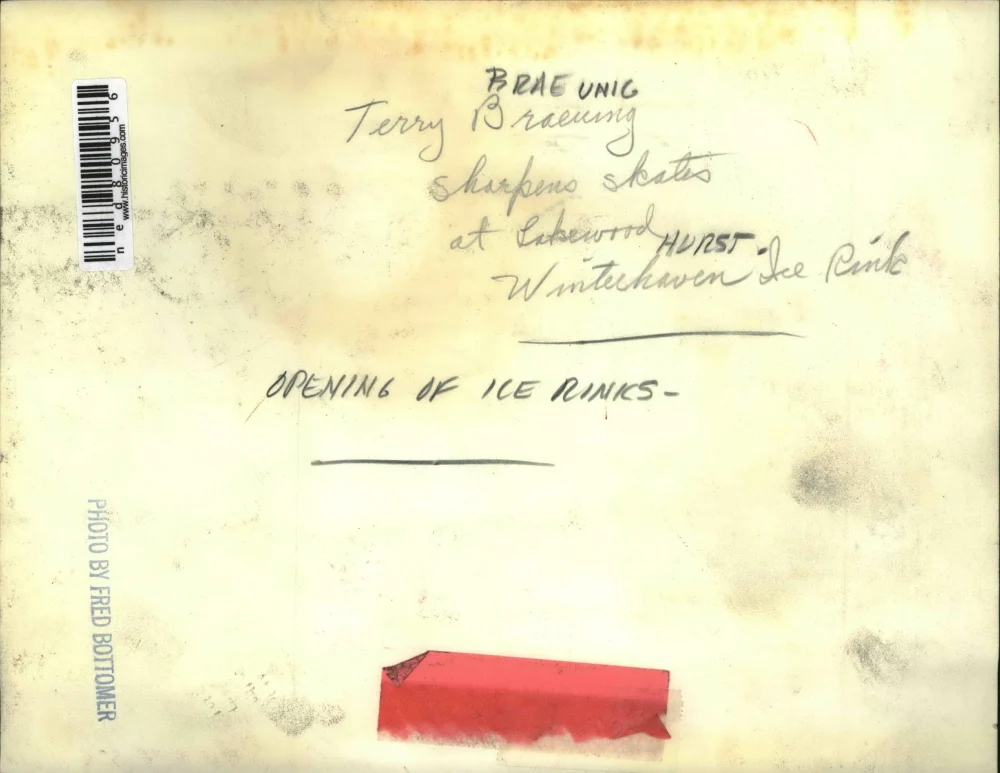 BRAEUNIG
Terry Braeunig
sharpens skates
at Lakewood
HURST.
Winterhaven Ice Rink
OPENING OF ICE RINKS-
ned80956
www.historicimages.com
PHOTO BY FRED BOTTOMER